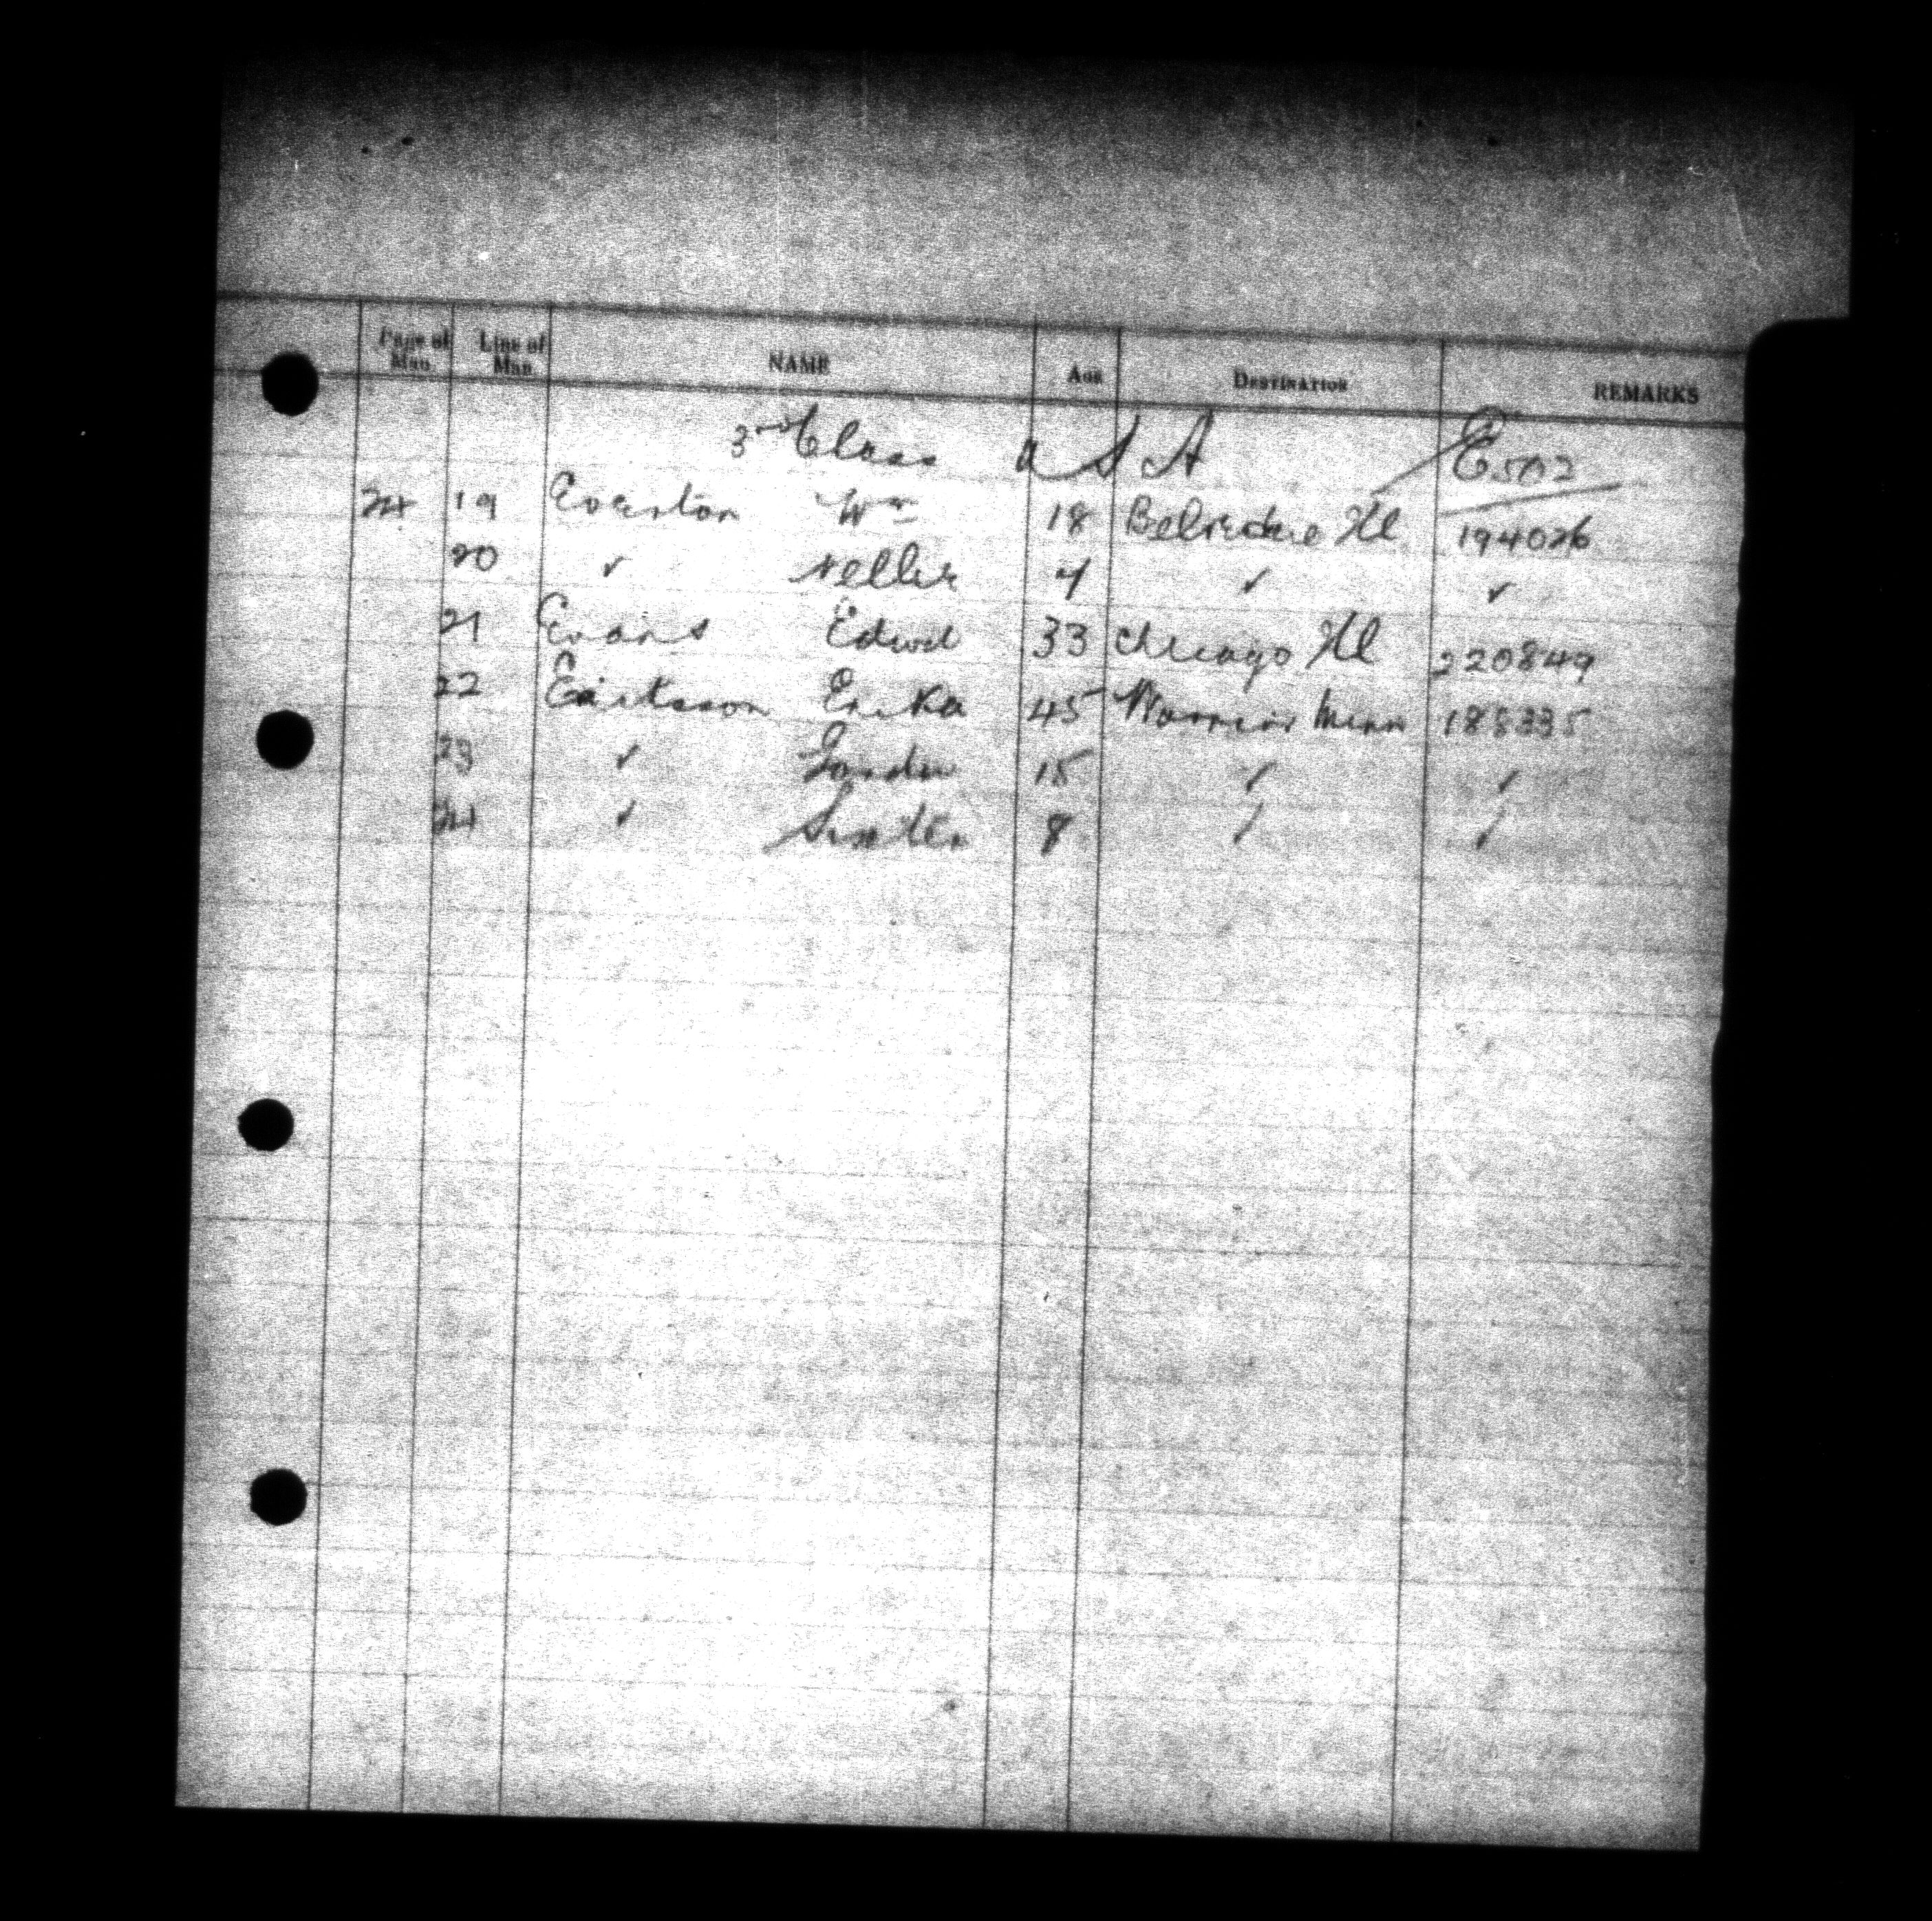 Page of Man. Line of Man. NAME AGE DESTINATION REMARKS
3rd Class U S A E 502
24 19 Everton Wm 18 Belvedere Ill 194026
20 ✓ Nellie 4 ✓ ✓
21 Evans Edwd 33 Chicago Ill 220849
22 Ericksson Erika 45 Warrior Minn 188335
23 ✓ 15 ✓ ✓
24 ✓ Sixten 8 ✓ ✓